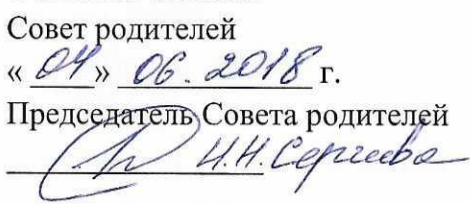 Совет родителей
« 04 » 06. 2018 г.
Председатель Совета родителей
И.Н. Сергеева